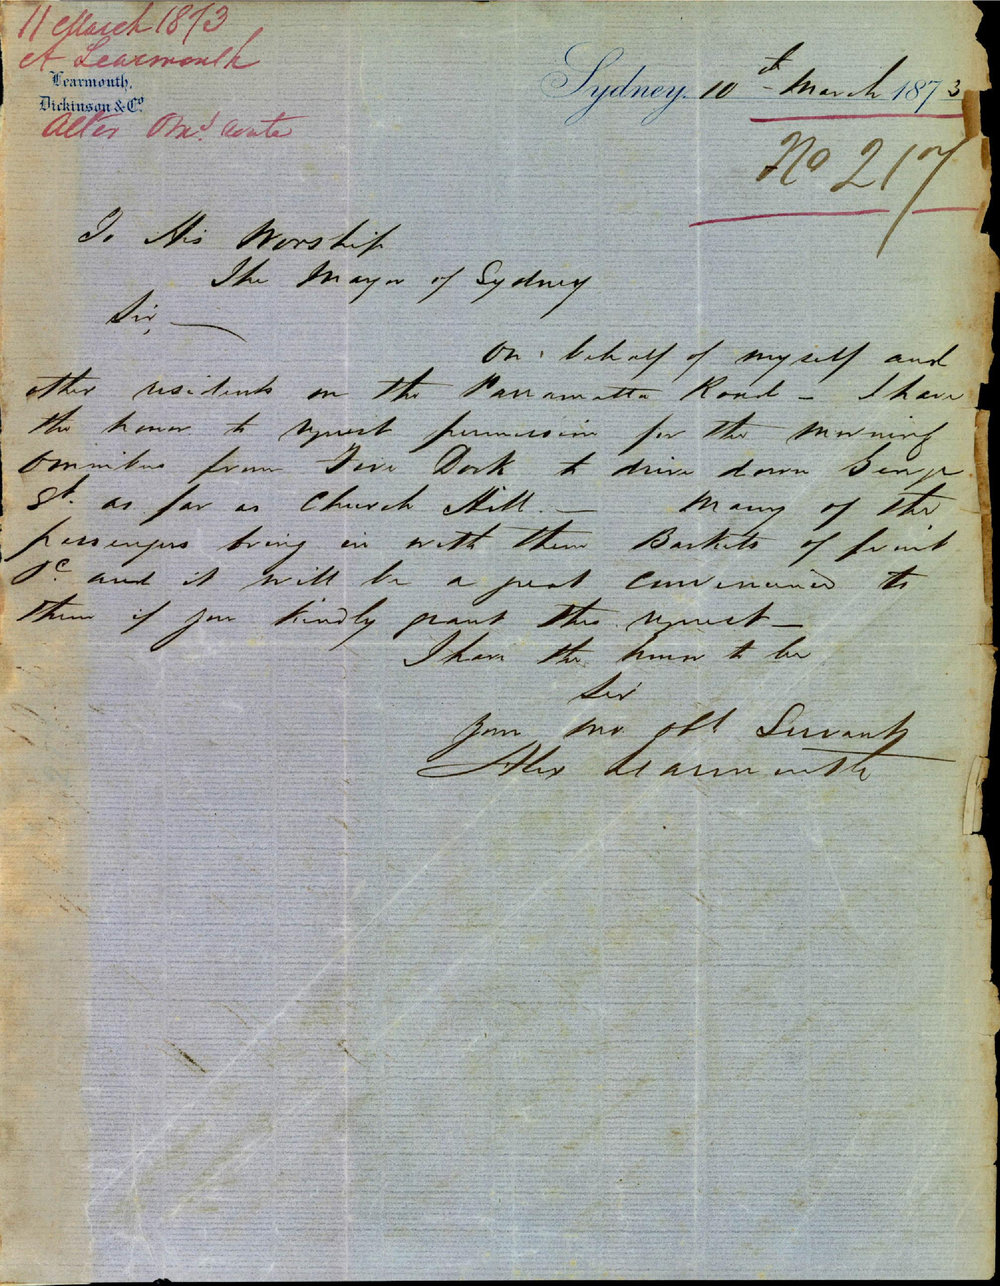 11 March 1873
A Learmonth
Learmonth,
Dickinson & Co.
Alter Oms. route
Sydney, 10th March 1873
No 217
To His Worship
The Mayor of Sydney
Sir,
On behalf of myself and
other residents on the Parramatta Road - I have
the honor to request permission for the morning
Omnibus from Five Dock to drive down George
St. as far as Church Hill. - Many of the
passengers bring in with them Baskets of fruit
&c. and it will be a great convenience to
them if you kindly grant this request -
I have the honor to be
Sir
Your Mo Obt Servant
Alex Learmonth